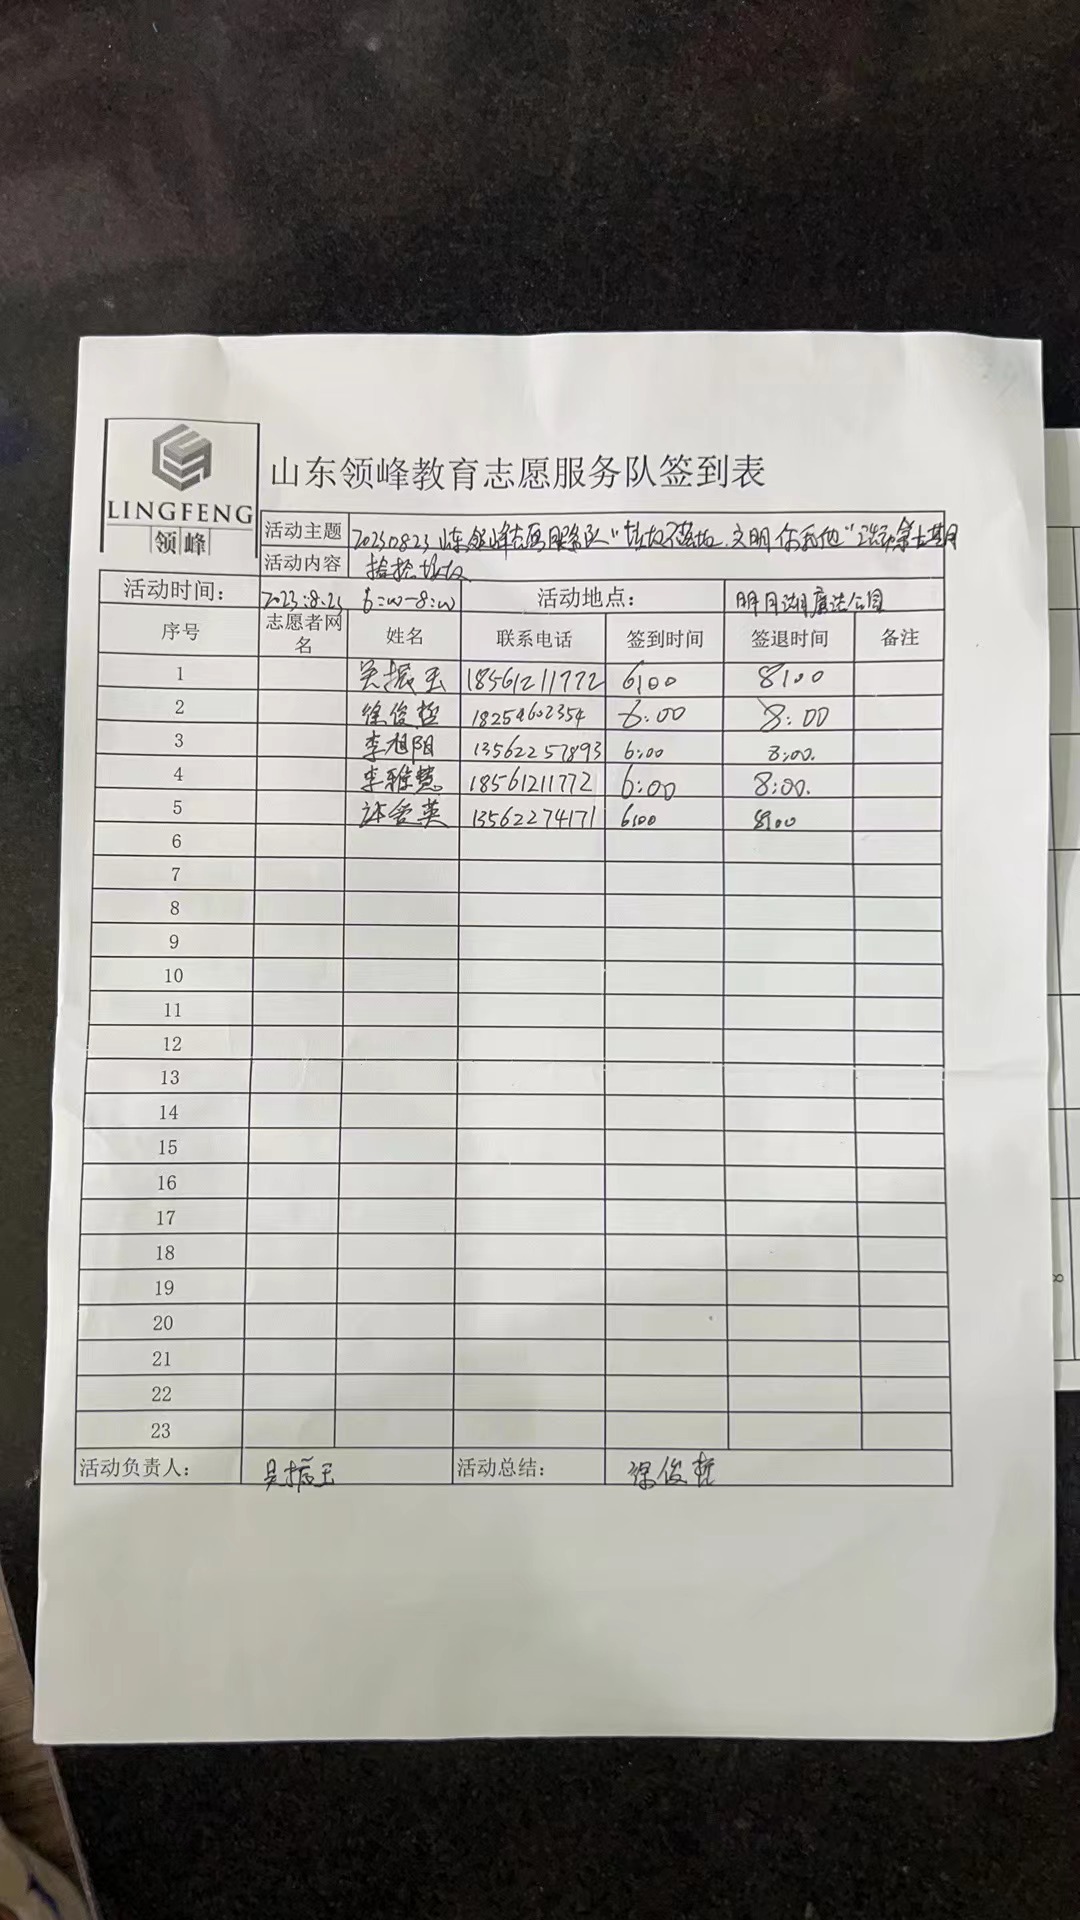 山东领峰教育志愿服务队签到表
LINGFENG
领峰
活动主题 20230823山东领峰志愿服务队"垃圾不落地.文明你我他"活动第七期
活动内容 捡捡垃圾
活动时间: 2023.8.23 6:00-8:00 活动地点: 明月湖廉洁公园
序号 志愿者网名 姓名 联系电话 签到时间 签退时间 备注
1 吴振玉 18561211772 6:00 8:00
2 徐俊哲 18254602354 6:00 8:00
3 李旭阳 13562257893 6:00 8:00.
4 李雅慧 18561211772 6:00 8:00.
5 许爱英 13562274171 6:00 8:00
6
7
8
9
10
11
12
13
14
15
16
17
18
19
20
21
22
23
活动负责人: 吴振玉 活动总结: 徐俊哲
8